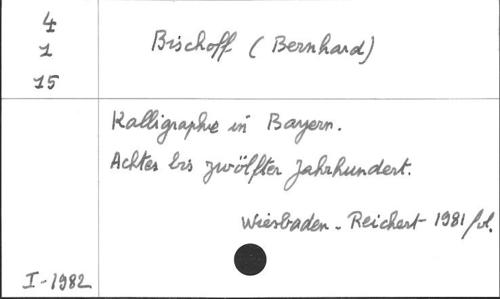 4
1
15
Bischoff (Bernhard)
Kalligraphie in Bayern.
Achtes bis zwölfter Jahrhundert.
Wiesbaden - Reichert 1981 /vl.
I-1982